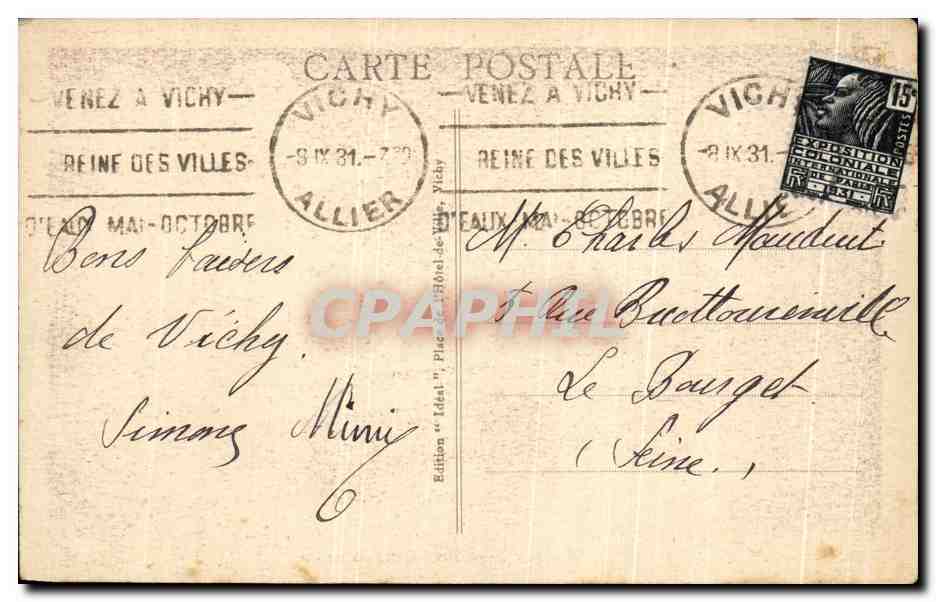 CARTE POSTALE
VENEZ A VICHY
REINE DES VILLES
D'EAUX MAI-OCTOBRE
VICHY
-8 IX 31.- 7 30
ALLIER
VENEZ A VICHY
REINE DES VILLES
D'EAUX MAI-OCTOBRE
VICHY
-8 IX 31.-
ALLIER
15c
POSTES
EXPOSITION
COLONIALE
INTERNATIONALE
DE PARIS
1931
Bons baisers
de Vichy.
Simone Mimi
Edition " Idéal ", Place de l'Hôtel-de-Ville, Vichy
M. Charles Mauduit
5 Rue
Le Bourget
(Seine.)
CPAPHIL